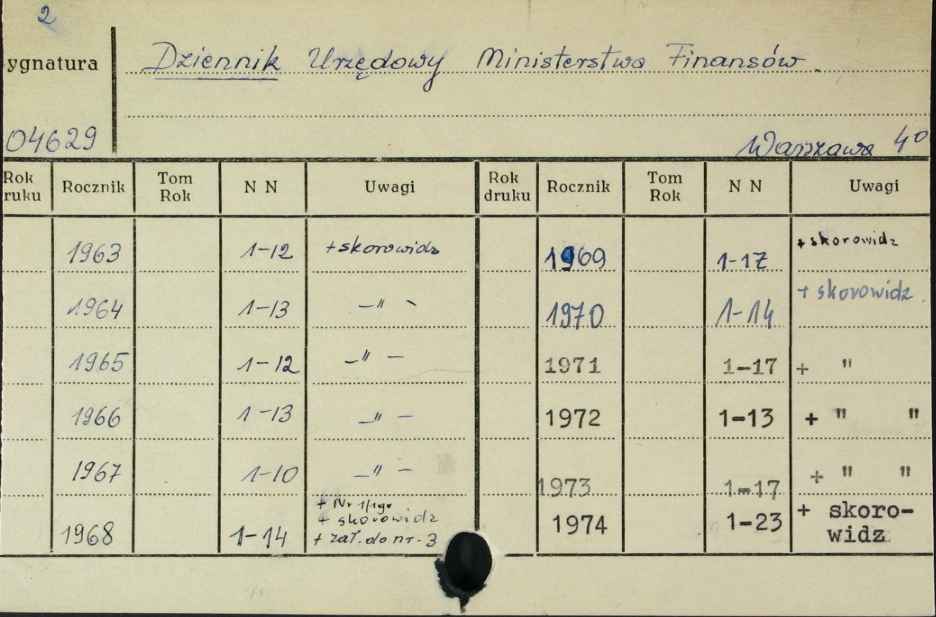 2
ygnatura
Dziennik Urzędowy Ministerstwa Finansów.
04629
Warszawa 4°
Rok ruku Rocznik Tom Rok N N Uwagi Rok druku Rocznik Tom Rok N N Uwagi
1963 1-12 + skorowidz 1969 1-17 + skorowidz
1964 1-13 -"- 1970 1-14 + skorowidz
1965 1-12 -"- 1971 1-17 + "
1966 1-13 -"- 1972 1-13 + " "
1967 1-10 -"- 1973 1-17 + " "
1968 1-14 + Nr 1/
+ skorowidz
+ zał. do nr. 3
1974 1-23 + skoro-
widz